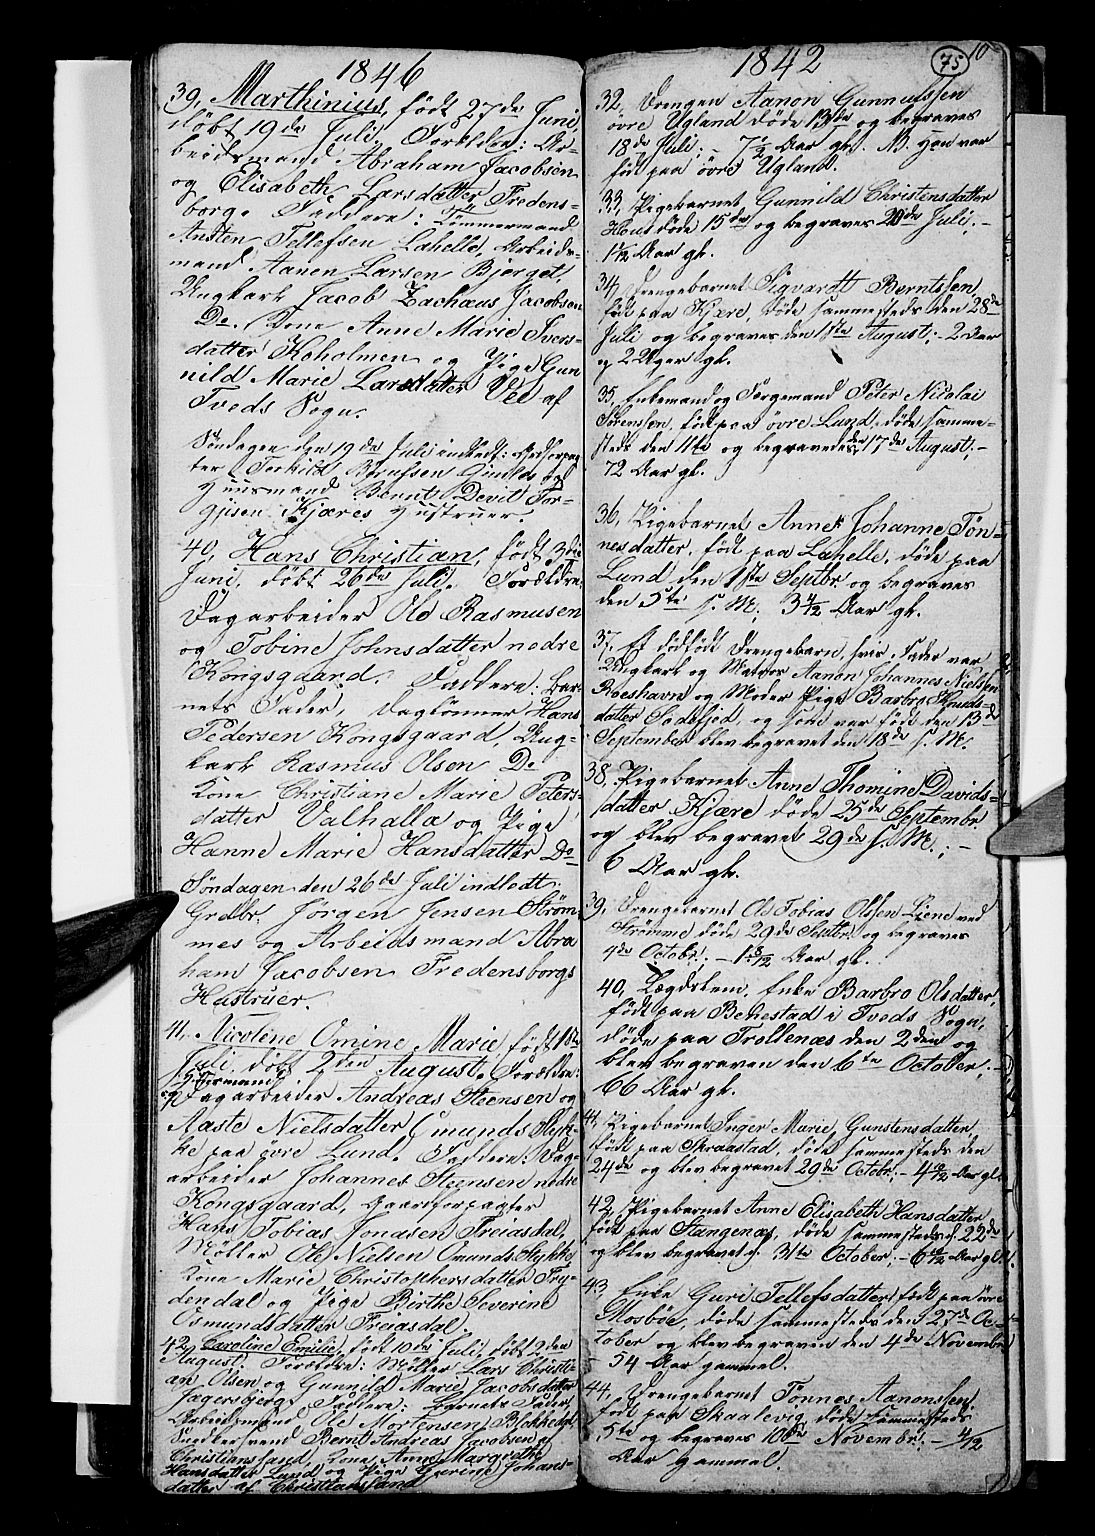 1846
39, Marthinius, født 27de Juni,
døbt 19de Juli. Forældre: Ar-
beidsmand Abraham Jacobsen
og Elisabeth Larsdatter Fredens-
borg. Faddere: Tømmermand
Austen Tellefsen Lahelle, Arbeids-
mand Aanen Larsen Bjorget,
Ungkarl Jacob Zachæus Jacobsen
Do. Kone Anne Marie Ivers-
datter Koholmen og Pige Gun
nild Marie Larsdatter Vee af
Tveds Sogn.
Søndagen den 19de Juli indledt: Gaardforpag-
ter Terkild
Huusmand Bernt Devit Tor-
gjusen Kjæres Hustruer.
40, Hans Christian, født 3die
Juni, døbt 26de Juli. Forældre:
Dagarbeider Ole Rasmusen
og Tobine Johnsdatter nedre
Kongsgaard. Faddere: Bar-
nets Fader, Daglønner Hans
Pedersen Kongsgaard, Ung-
karl Rasmus Olsen Do
Kone Christiane Marie Peters-
datter Valhalla og Pige
Hanne Marie Hansdatter Do
Søndagen den 26de Juli indledt:
Grdbr. Jørgen Jensen Strøm-
mes og Arbeidsmand Abra
ham Jacobsen Fredensborgs
Hustruer.
41, Nicoline Omine Marie, født 1ste
Juli, døbt 2den August. Forældre:
Huusmand
og Dagarbeider Andreas Steensen og
Aaste Nielsdatter Omunds Styk-
ke paa øvre Lund. Faddere: Dag-
arbeider Johannes Steensen nedre
Kongsgaard, Gaardforpagter
Hans Tobias Jonasen Freiasdal,
Møller Ole Nielsen Omunds Stykke
Kone Marie Christophersdatter Fry-
dendal og Pige Birthe Severine
Osmundsdatter Freiasdal.
42, Caroline Emilie, født 10de Juli, døbt 2den
August. Forældre: Møller Lars Christi-
an Olsen og Gunnild Marie Jacobsdatter
Jagersbjerg. Faddere: Barnets Fader,
Arbeidsmand Ole Mortensen Blokkedal,
Snedkersvend Bernt Andreas Jacobsen af
Christianssand, Kone Anne Margrethe
Hansdatter Lund og Pige Gurine Johans-
datter af Christianssand
1842
75
10
32, Drengen Aanon Gunnufssen
øvre Ugland døde 13de og begraves
18de Juli. – 7 1/2 Aar gl. N. Han var
født paa øvre Ugland.
33, Pigebarnet Gunnild Christensdatter
døde 15de og begraves 20de Juli. –
1 1/2 Aar gl.
34, Drengebarnet Sigvardt Berntssen
født paa Kjære, døde sammesteds den 28de
Juli og begraves den 1ste August; – 2 Aar
og 2 Uger gl.
35, Enkemand og Færgemand Peter Nicolai
Sørenssen, født paa øvre Lund, døde samme-
steds den 11te og begravedes den 17de August; –
72 Aar gl.
36, Pigebarnet Anne Johanne Tøn-
nesdatter, født paa Lahelle, døde paa
Lund den 1ste Septbr. og begraves
den 5te s. M; 3 4/12 Aar gl.
37, Et dødfødt Drengebarn, hvis Fader var
Ungkarl og Matros Aanon Johannes Nielsen
Roeshavn og Moder Pige Barbro Knuds-
datter Sødefjed, og som var født den 13de
September blev begravet den 18de s. M.
38, Pigebarnet Anne Thomine Davids-
datter Kjære døde 25de Septembr.
og blev begravet 29de s. M.; –
6 Aar gl.
39, Drengebarnet Ole Tobias Olssen Liene ved
Strømme døde 29de Septbr. og begraves
4de Octobr.; – 1 8/12 Aar gl.
40, Lægdslem, Enke Barbro Olsdatter,
født paa Behestad i Tveds Sogn,
døde paa Trollenæs den 2den og
blev begraven den 6te October; –
66 Aar gl.
41, Pigebarnet Inger Marie Gunstensdatter,
født paa Skraastad, døde sammesteds den
24de og blev begravet 29de Octobr; – 4 9/12 Aar gl.
42, Pigebarnet Anne Elisabeth Hansdatter
født paa Stangenæs, døde sammesteds d. 22de
og blev begravet d. 31te October; – 6 Aar gl.
43, Enke Guri Tellefsdatter, født paa øvre
Mosbøe, døde sammesteds den 27de Oc-
tober og blev begraven den 4de November
– 54 Aar gammel.
44, Drengebarnet Tønnes Aanonssen,
født paa Skaalevig, døde sammesteds
5te og begraves 10de Novembr. – 4/12
Aar gammel.